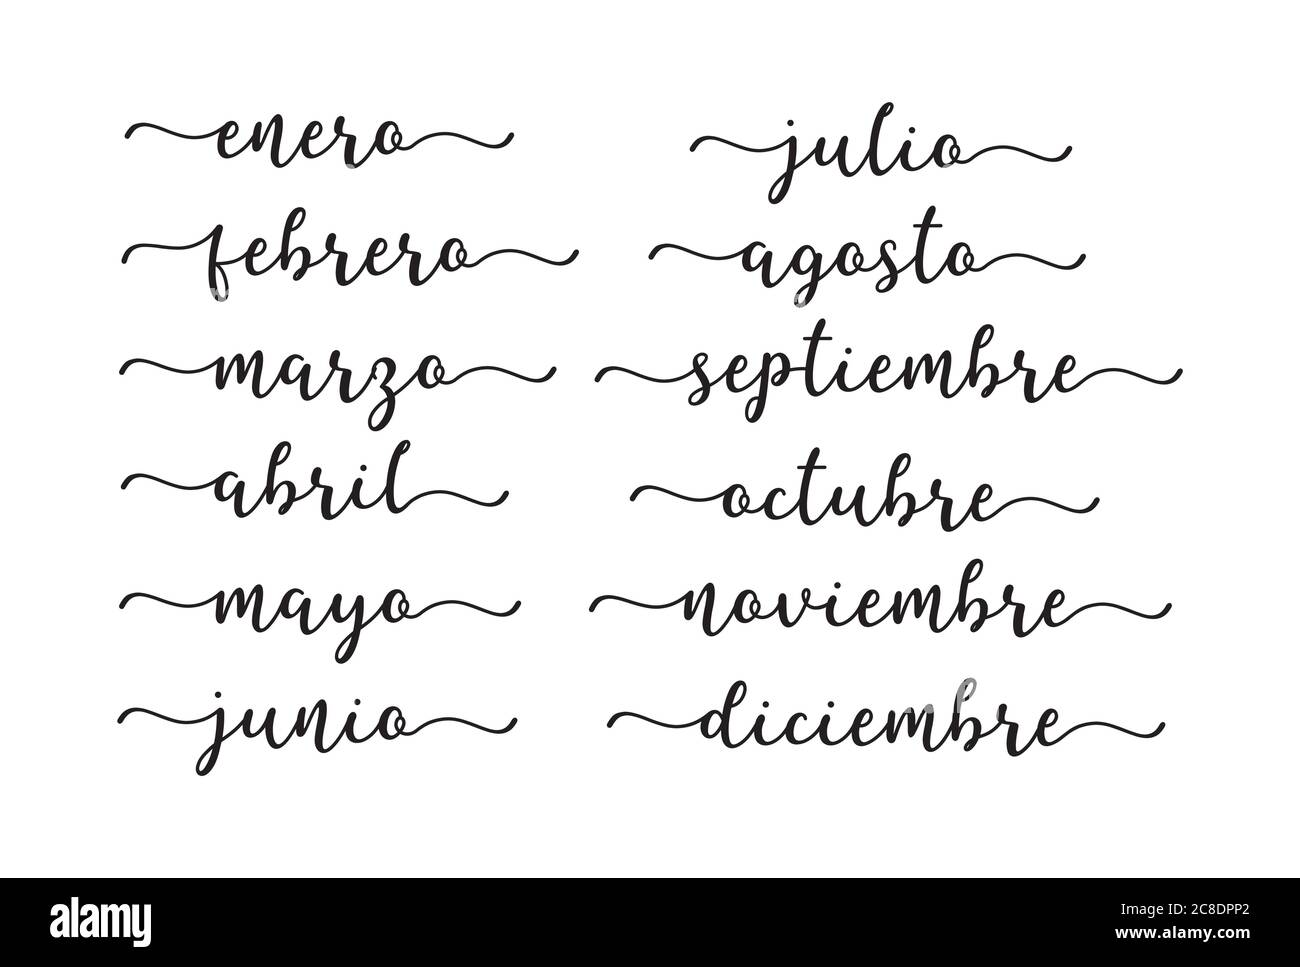 enero
febrero
marzo
abril
mayo
junio
julio
agosto
septiembre
octubre
noviembre
diciembre
alamy
Image ID: 2C8DPP2
www.alamy.com